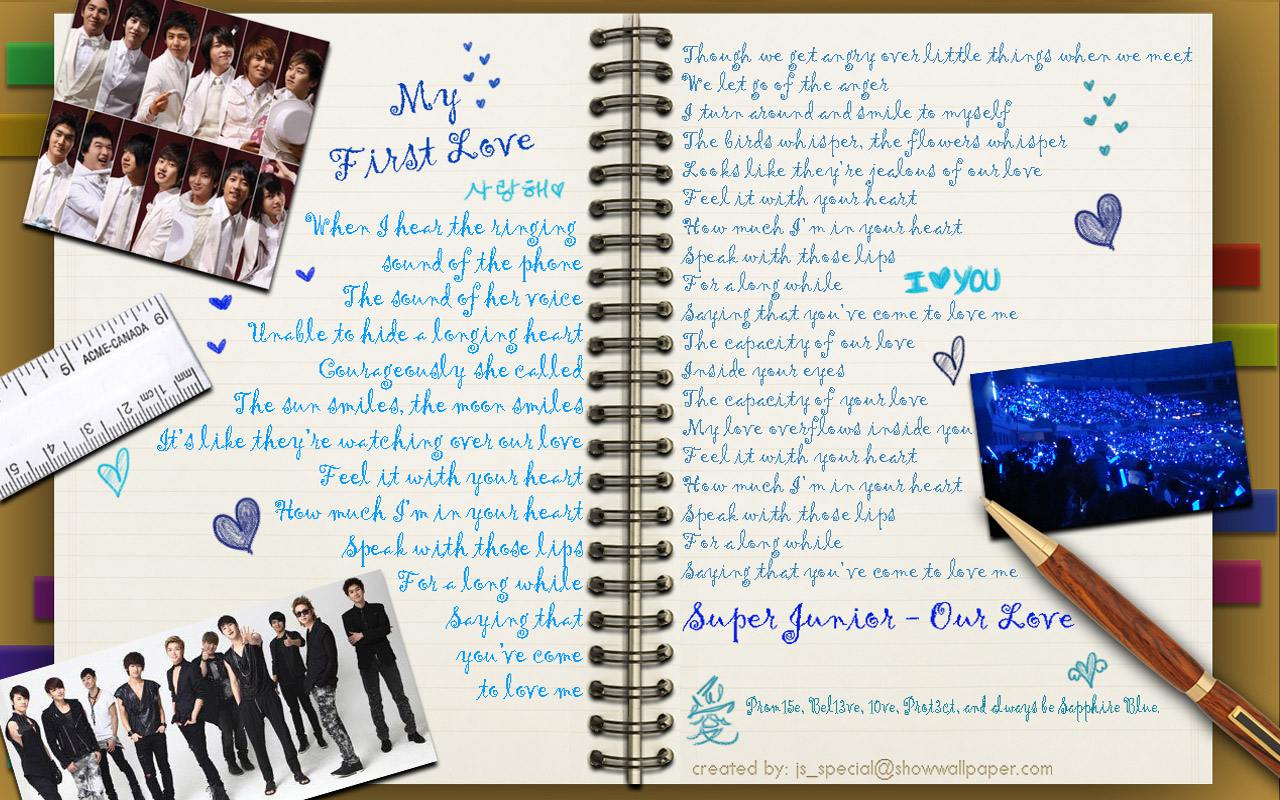 My
First Love
사랑해♡
When I hear the ringing
sound of the phone
The sound of her voice
Unable to hide a longing heart
Courageously she called
The sun smiles, the moon smiles
It's like they're watching over our love
Feel it with your heart
How much I'm in your heart
Speak with those lips
For a long while
Saying that
you've come
to love me
ACME-CANADA
Though we get angry over little things when we meet
We let go of the anger
I turn around and smile to myself
The birds whisper, the flowers whisper
Looks like they're jealous of our love
Feel it with your heart
How much I'm in your heart
Speak with those lips
For a long while
I♥YOU
Saying that you've come to love me
The capacity of our love
Inside your eyes
The capacity of your love
My love overflows inside you
Feel it with your heart
How much I'm in your heart
Speak with those lips
For a long while
Saying that you've come to love me
Super Junior - Our Love
愛
Prom15e, Bel13ve, 10ve, Prot3ct, and always be Sapphire Blue.
created by: js_special@showwallpaper.com